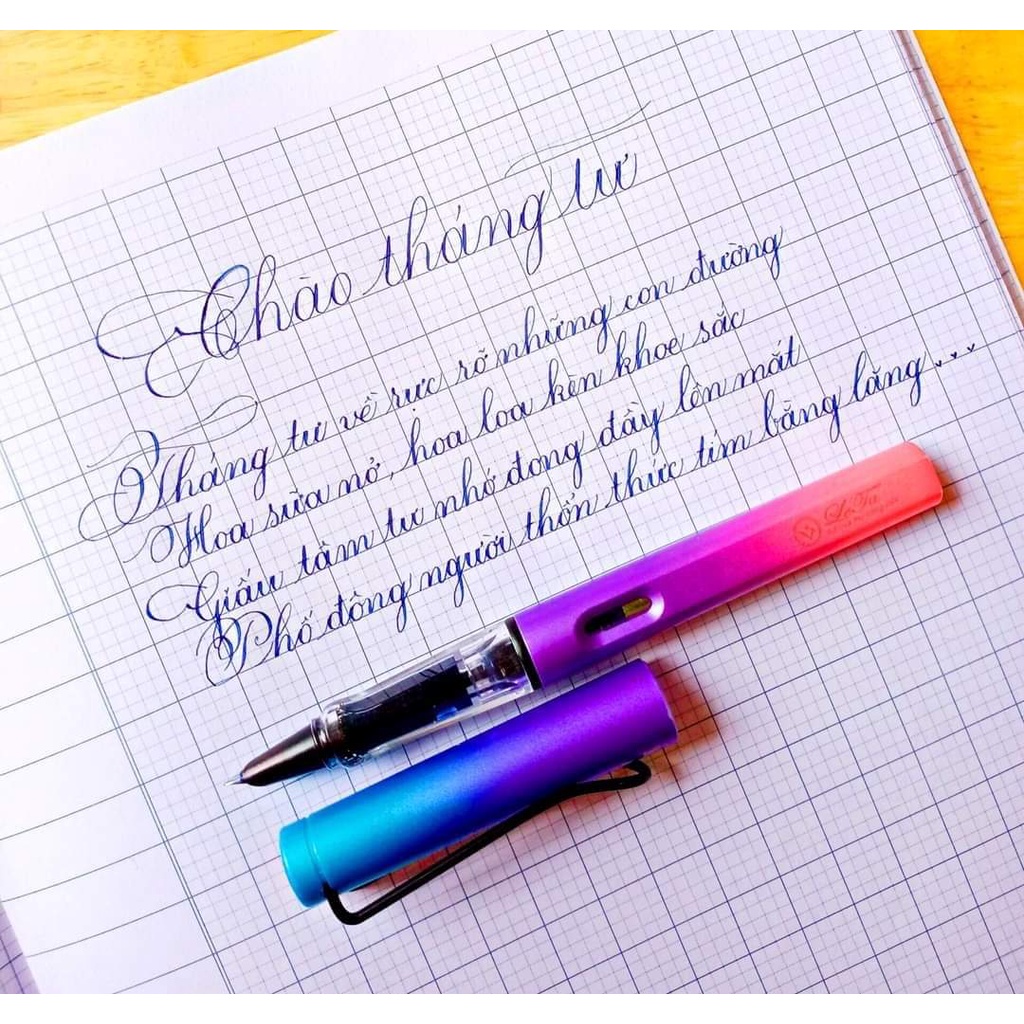 Chào tháng tư
Tháng tư về rực rỡ những con đường
Hoa sữa nở, hoa loa kèn khoe sắc
Giấu tâm tư nhớ đong đầy lên mắt
Phố đông người thổn thức tím bằng lăng...